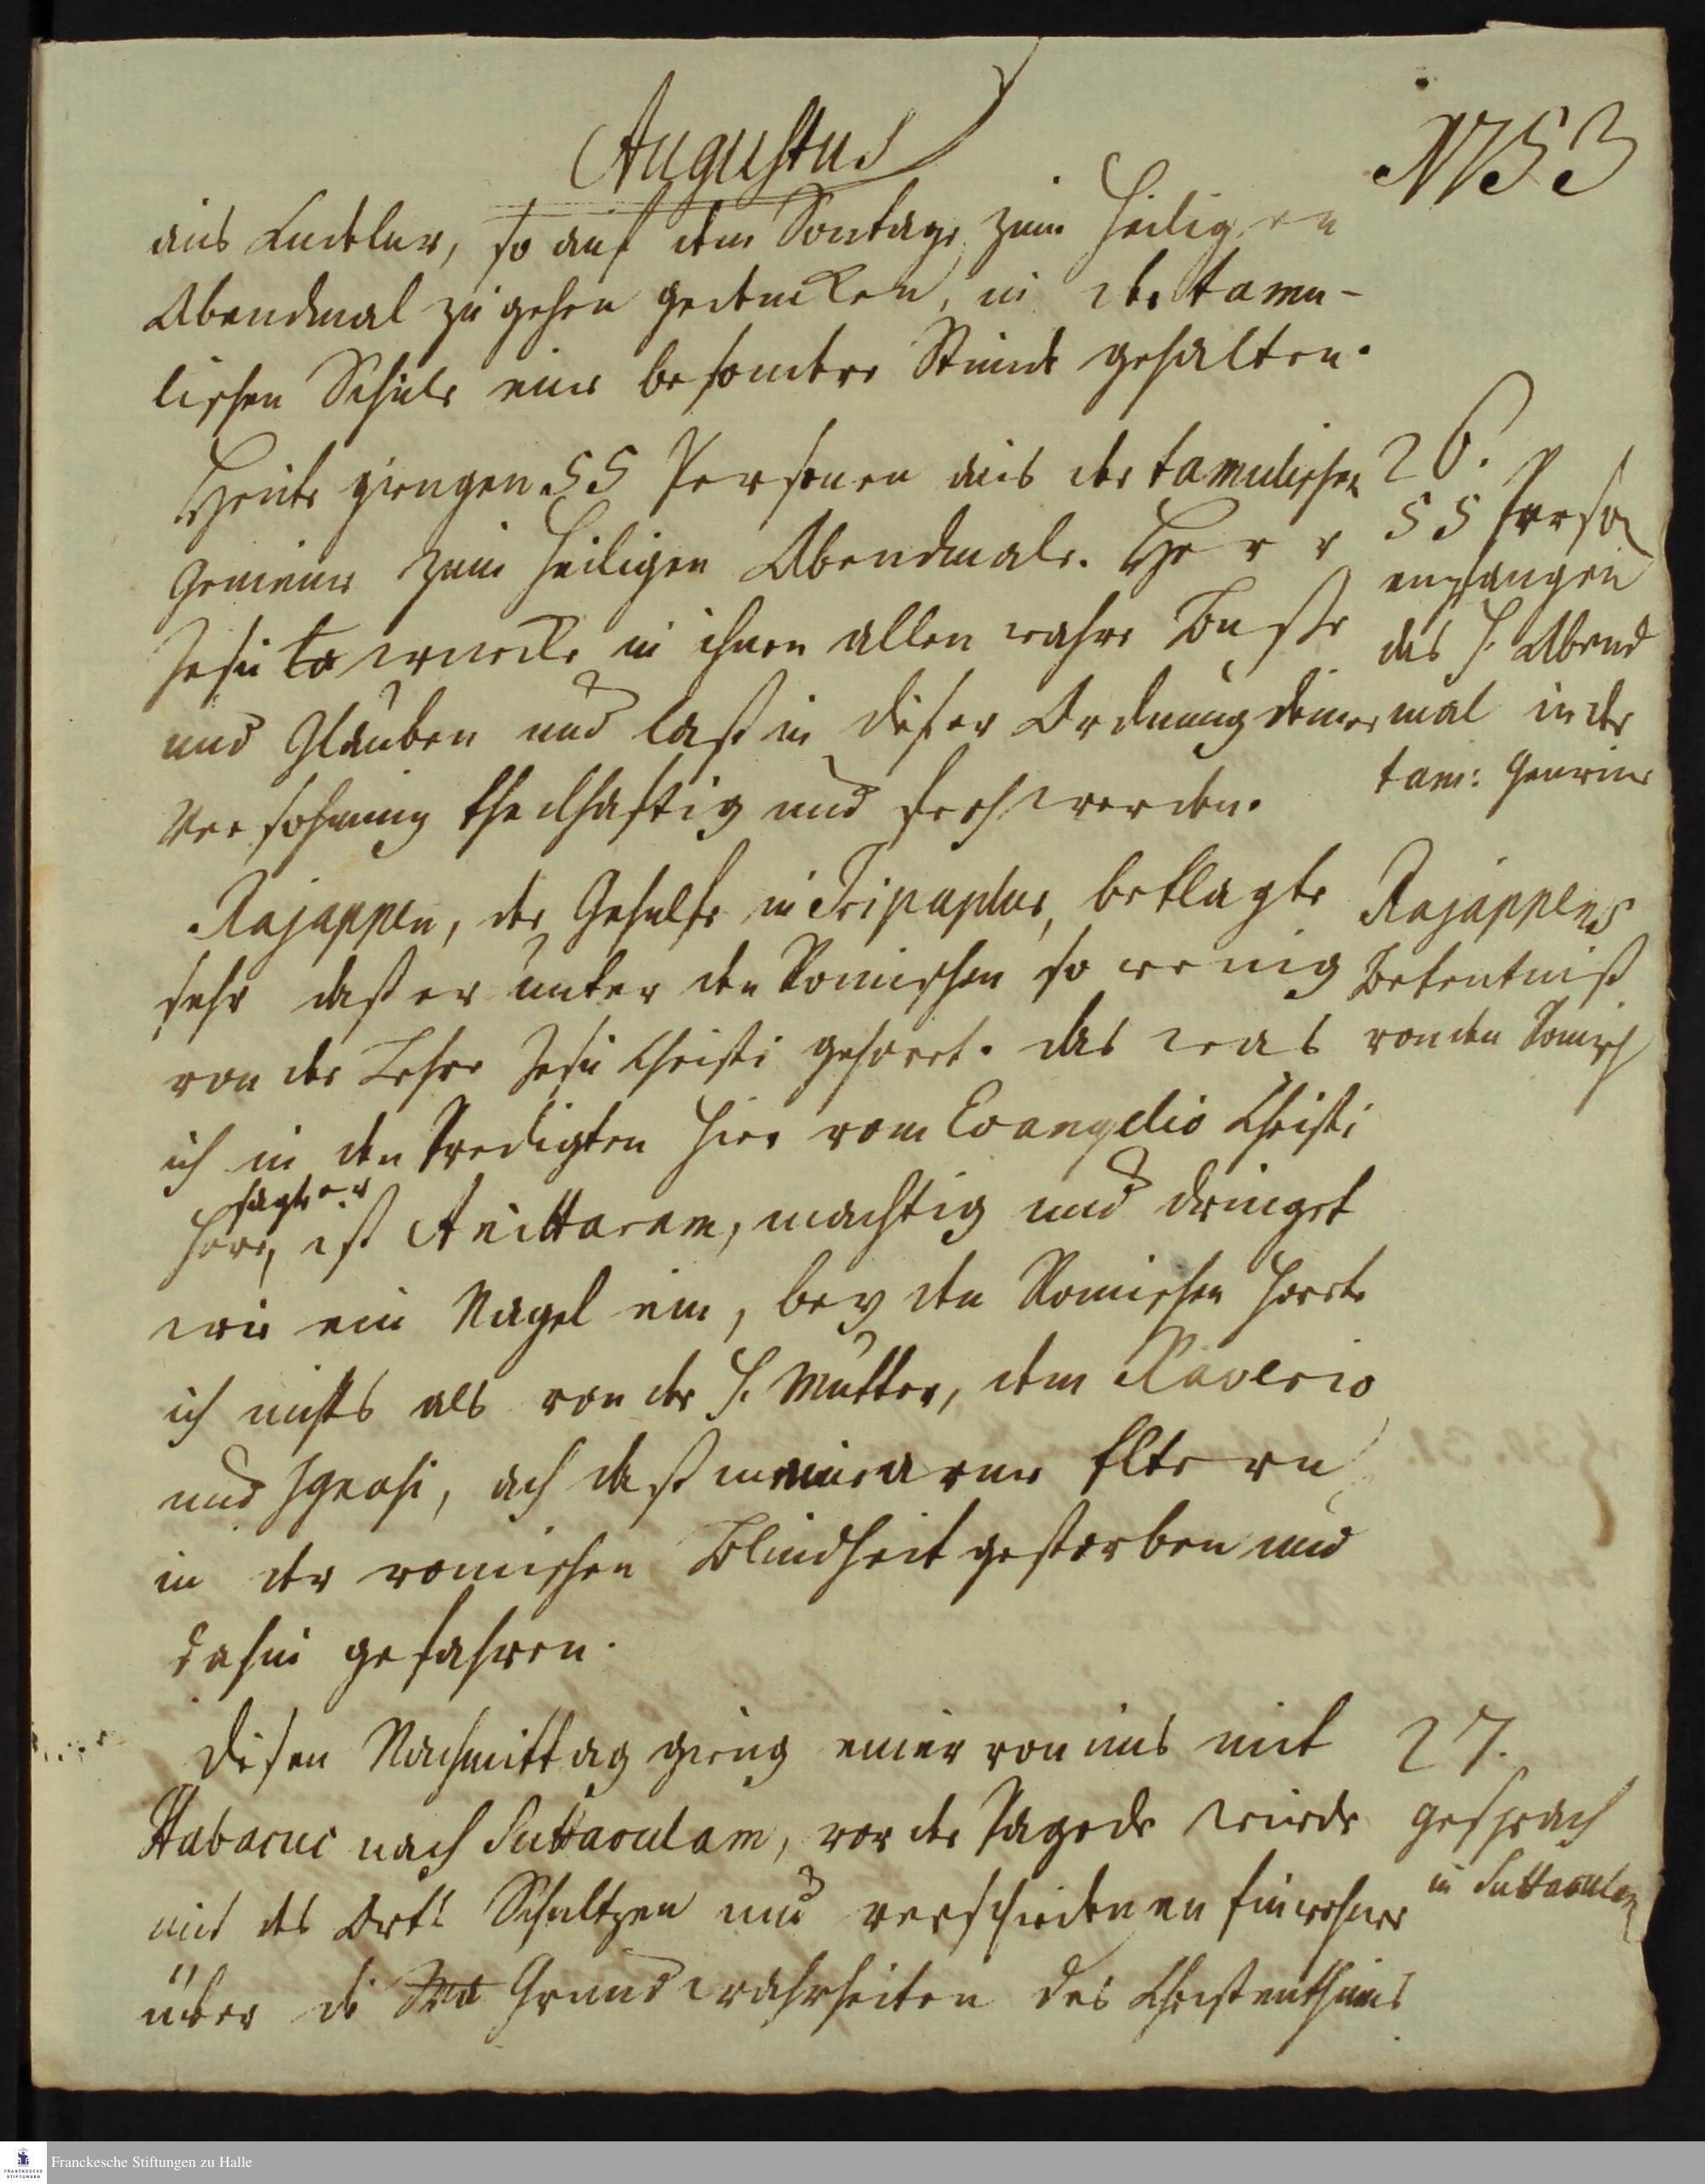 Augustus
1753
aus Cudelur, so auf dem Sontage zum heiligen
Abendmal zu gehen gedencken, in der tamu-
lischen Schule eine besondere Stunde gehalten.
Heute giengen 55 Personen aus der tamulischen
Gemeine zum heiligen Abendmale. Herr
Jesu erwecke in ihnen allen wahre Busse
und Glauben und laß in dieser Ordnung deiner
Versohnung theilhaftig und froh werden.
26.
55 Perso
empfangen
das h. Abend
mal in der
tam: Gemeine
Rajappen, der Gehulfe in Tripaplur, beklagte
sehr daß er unter den Romischen so wenig
von der Lehre Jesu Christi gehoert. das was
ich in den Predigten hier vom Evangelio Christi
sagte er
hore, ist machtig und dringet
wie ein Nagel ein, bey den Romischen hoerte
ich nichts als von der h. Mutter, dem Xaverio
und Ignasi, ach daß meine arme Eltern
in der romischen Blindheit gestorben und
dahin gefahren.
Rajappens
Bekentniß
von den Romisch
Diesen Nachmittag gieng einer von uns mit
Habacuc nach Suttaculam, vor der Pagode wurde
mit des Orts Schultzen und verschiedenen Einwohner
über die Grundwahrheiten des Christenthums
27.
gesprach
in Suttaculam
Franckesche Stiftungen zu Halle